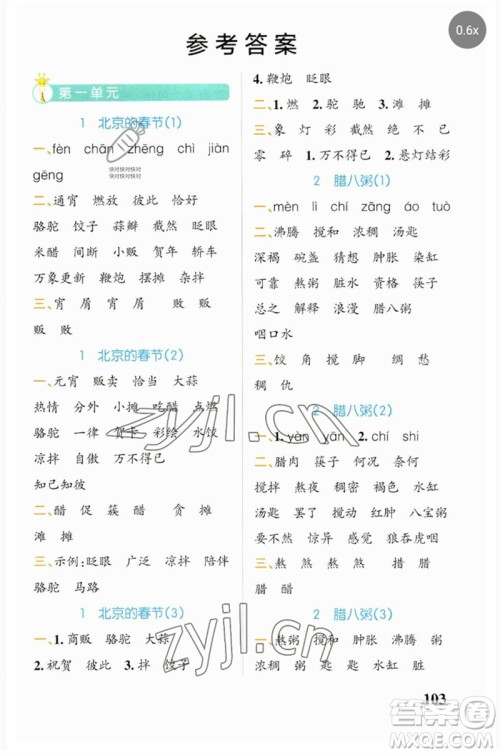 参考答案
0.6x
第一单元
1 北京的春节(1)
一、fèn chān zhēng chì jiàn
gēng
二、通宵 燃放 彼此 恰好
骆驼 饺子 蒜瓣 截然 眨眼
米醋 间断 小贩 贺年 轿车
万象更新 鞭炮 摆摊 杂拌
三、宵 屑 霄 败 贩
贩 败
1 北京的春节(2)
一、元宵 贩卖 恰当 大蒜
热情 分外 小摊 吃醋 点燃
骆驼 一律 贺卡 彩绘 水饺
凉拌 自傲 万不得已
知己知彼
二、醋 促 簇 醋 贪 滩
滩 摊
三、示例:眨眼 广泛 凉拌 陪伴
骆驼 马路
1 北京的春节(3)
一、1.商贩 骆驼 大蒜
2.祝贺 彼此 3.拌 饺子
4.鞭炮 眨眼
二、1.燃 2.驼 驰 3.滩 摊
三、象 灯 彩 截然 张 此
零 碎 1.万不得已 2.悬灯结彩
2 腊八粥(1)
一、mèn lì chí zāng áo tuò
二、沸腾 搅和 浓稠 汤匙
深褐 碗盏 猜想 肿胀 染缸
可靠 熬粥 脏水 资格 筷子
总之 解释 浪漫 腊八粥
咽口水
三、饺 角 搅 脚 绸 愁
稠 仇
2 腊八粥(2)
一、1.yàn yān 2.chí shi
二、腊肉 筷子 何况 奈何
搅拌 熬夜 稠密 褐色 染缸
汤匙 罢了 肿胀 红枣 八宝粥
要不然 浓浓 感觉 狼吞虎咽
三、熬 熬 煞 熬 腊 蜡
腊 醋
2 腊八粥(3)
一、熬粥 搅拌 沸腾 粥
浓稠 汤匙 感觉
103
快对快对快对
快对快对快对
zyjl.cn
zyjl.cn
答案圈
MXQE.COM